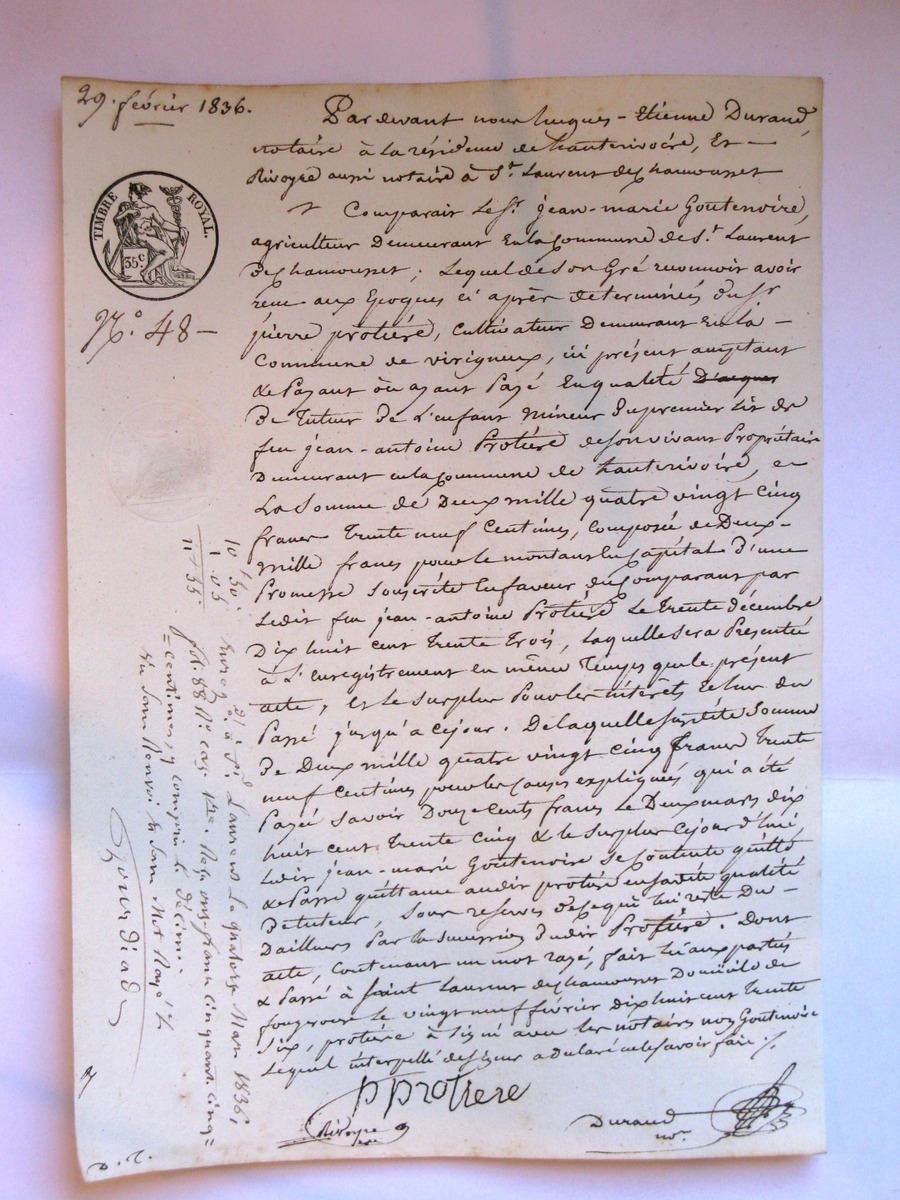 29. février 1836.
TIMBRE ROYAL.
35c
N.o 48 –
Par devant nous hugues – Etienne Durand,
notaire à la résidence de hauterivoire, Et –
Rivoyre aussi notaire à St. Laurent de chamousset
Comparait le Sr. jean-marie Goutenoire,
agriculteur Demeurant En la Commune de St. Laurent
De chamousset ; Lequel de son Gré reconnoit avoir
recu aux Epoques ci après determinées du Sr
pierre protière, Cultivateur Demeurant En la –
Commune de virigneux, ici présent acceptant
& Payant ou ayant Payé En qualité D'acques
De Tuteur De L'enfant mineur Du premier Lit de
feu jean-antoine Protière de son vivant Propriétaire
Demeurant en la Commune de hauterivoire,
La Somme de Deux mille quatre vingt cinq
francs Trente neuf Centimes, Composée de Deux –
mille francs pour le montant En Capital D'une
Promesse Souscrite En faveur du Comparant par
Ledit feu jean-antoine Protière Le trente décembre
Dix huit cent trente trois, Laquelle sera Présentée
à L'Enregistrement en même Temps que le présent
acte, Et le Surplus Pour les intérêts Echus du
Passé jusqu'à ce jour. De laquelle susdite Somme
De Deux mille quatre vingt cinq francs Trente
neuf Centimes pour les Causes expliquées qui a été
Payée Savoir Douze Cents francs le Deux mars dix
huit cent Trente Cinq & le Surplus ce jour d'hui
Ledit jean-marie Goutenoire se Contente quitte
& Passe quittance audit protière en sadite qualité
De tuteur, Sous reserves de ce qui lui reste Du –
Dailleurs Par la succession Dudit Protière. Dont
acte, Contenant un mot rayé, fait Lu aux parties
& Passé à Saint Laurent de chamousset Domicile de
le vingt neuf février Dix huit cent Trente
Six, protière à Signé avec les notaires non Goutenoire
Lequel interpellé de Signer a Declaré ne le Savoir faire ./.
p protiere
Rivoyre
Durand
no.re
10 50c
1 05
11 55
Enreg.é à St. Laurent Le quatorze Mars 1836,
fo. 88 Ro. cas. 1re. Reçu onze francs cinquante cinq =
= centimes, y compris le décime.
un Mot Rayé ./.